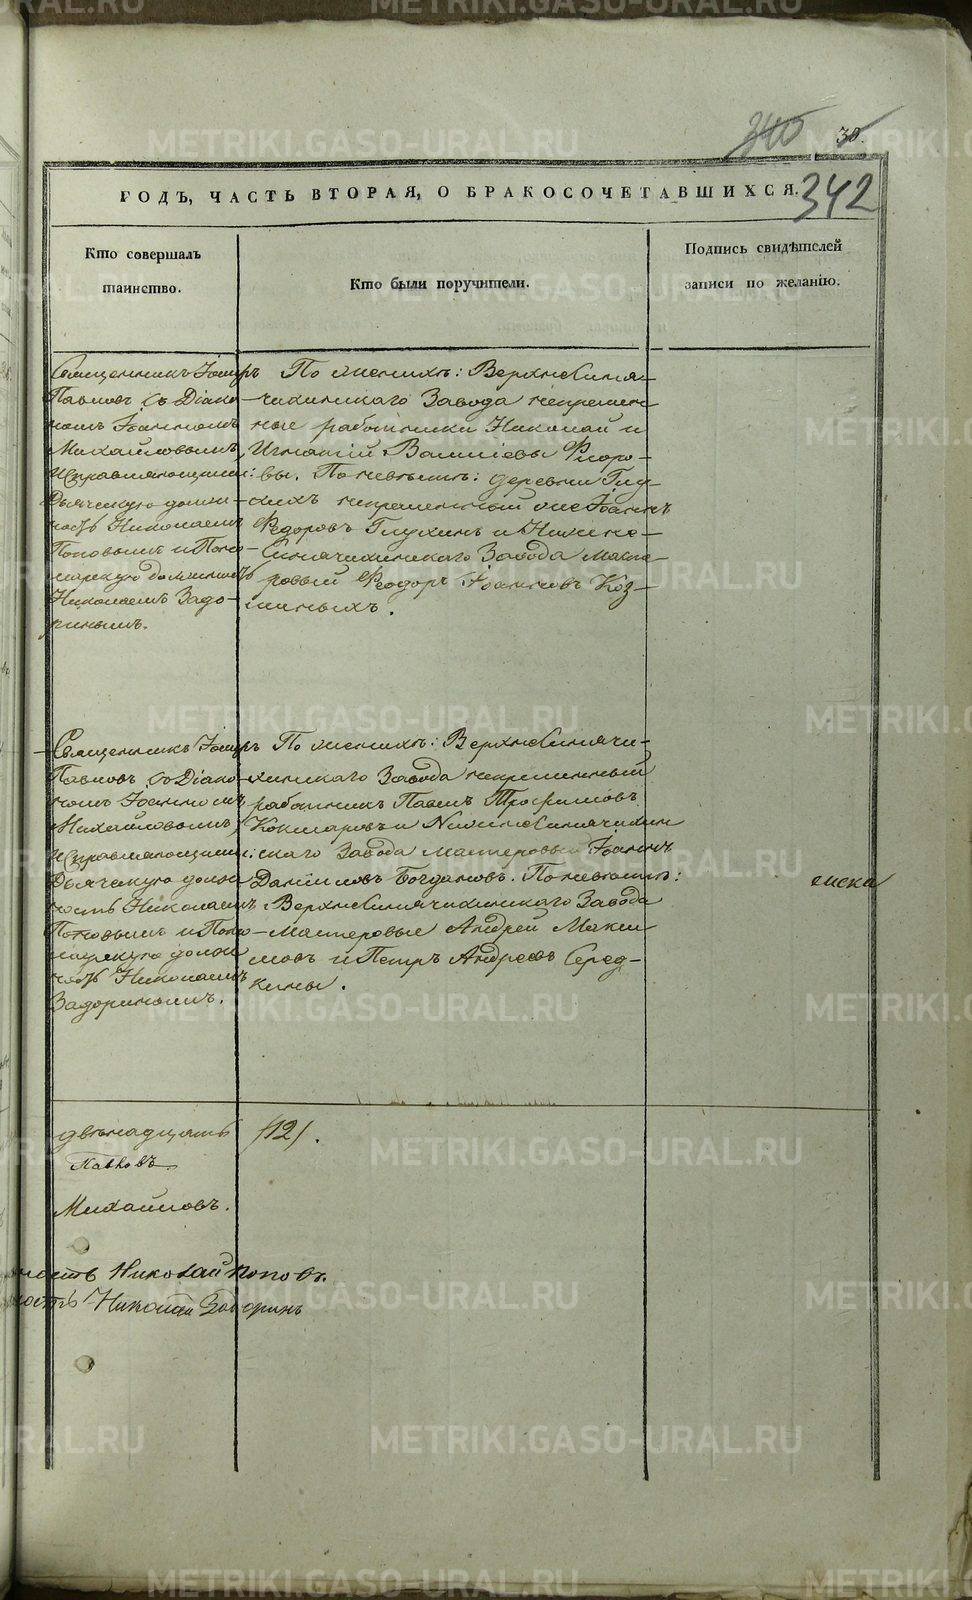 340 30.
342
ГОДЪ, ЧАСТЬ ВТОРАЯ, О БРАКОСОЧЕТАВШИХСЯ.
Кто совершалъ таинство.
Кто были поручители.
Подпись свидѣтелей записи по желанію.
Священникъ Іоаннъ
Павловъ съ Діако-
номъ Іоанномъ
Михайловымъ,
исправляющими:
Дьяческую долж-
ность Николаемъ
Поповымъ и Поно-
марскую должность
Николаемъ Задо-
ринымъ.
По женихѣ: Верхнесиня-
чихинскаго Завода непремен-
ные работники Николай и
Игнатій Василіевы Фиоро-
вы. По невѣстѣ: деревни Глу-
хихъ непременный оне Іоаннъ
Федоровъ Глухихъ и Нижне-
Синячихинскаго Завода масте-
ровый Феодоръ Іоанновъ Коз-
миныхъ.
Священникъ Іоаннъ
Павловъ со Діако-
номъ Іоанномъ
Михайловымъ,
исправляющими:
Дьяческую долж-
ность Николаемъ
Поповымъ и Поно-
марскую долж-
ность Николаемъ
Задоринымъ.
По женихѣ: Верхнесинячи-
хинскаго Завода непременный
работникъ Павелъ Трофимовъ
Кокшаровъ и Нижнесинячихин-
скаго Завода мастеровый Іоаннъ
Даниловъ Богдановъ. По невѣстѣ:
Верхнесинячихинскаго Завода
Мастеровые Андрей Макси-
мовъ и Петръ Андреевъ Серед-
кины.
двѣнадцать /12/.
Павловъ
Михайловъ.
ность Николай Поповъ.
ность Николай Задоринъ
METRIKI.GASO-URAL.RU